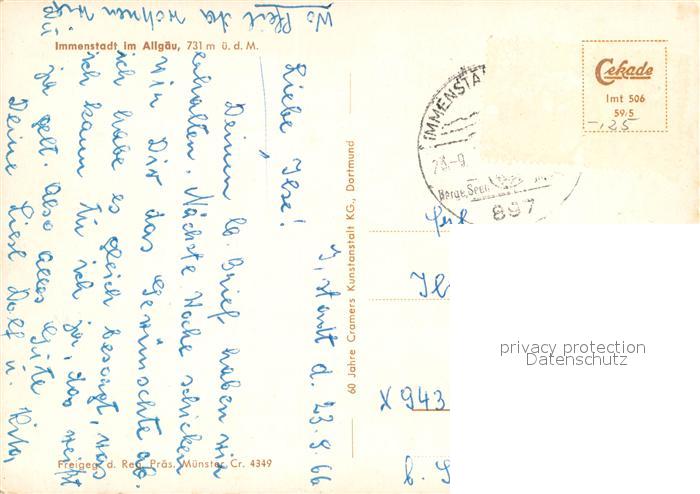 Immenstadt im Allgäu, 731 m ü. d. M.
Wo Pfeil da wohnen wir
I, stadt d. 23.9.66
Liebe Ilse!
Deinen lb. Brief haben wir
erhalten. Nächste Woche schicken
wir Dir das Gewünschte ab.
ich habe es gleich besorgt, was
ich kann tu ich ja, das weißt
ja gell. Also alles Gute
Deine Liesl Dolf u. Rita
Freigeg. d. Reg. Präs. Münster Cr. 4349
60 Jahre Cramers Kunstanstalt KG., Dortmund
Cekade
Imt 506
59/5
-125
IMMENSTA
23.-9.
Berge, Seen
897
Il
X 943
b. S
privacy protection
Datenschutz